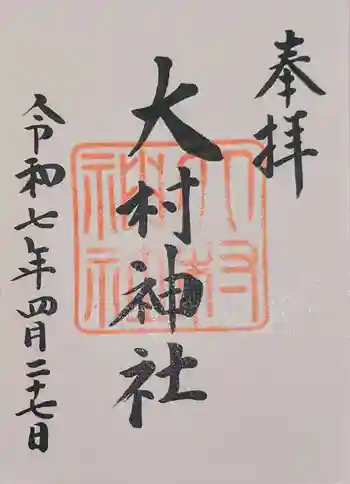 奉拝
大村神社
大村
神社
令和七年四月二十七日